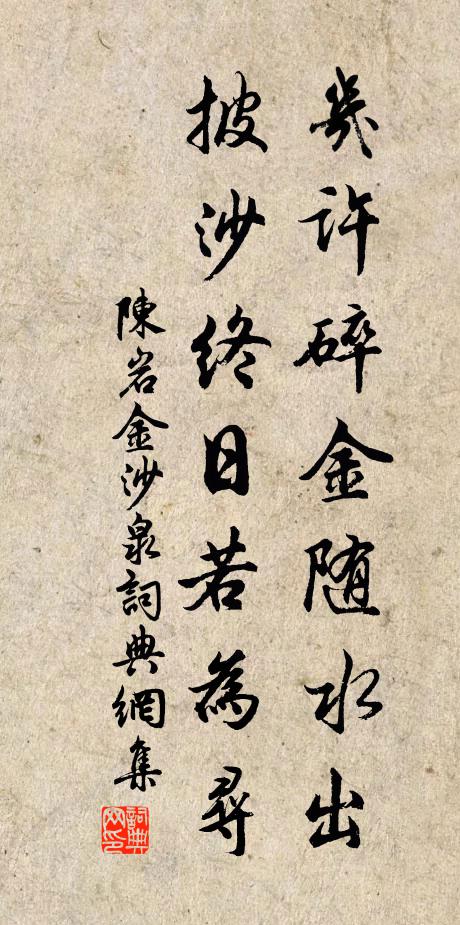 幾许碎金随水出
披沙終日若為尋
陳岩金沙泉詞典網集
詞典网印